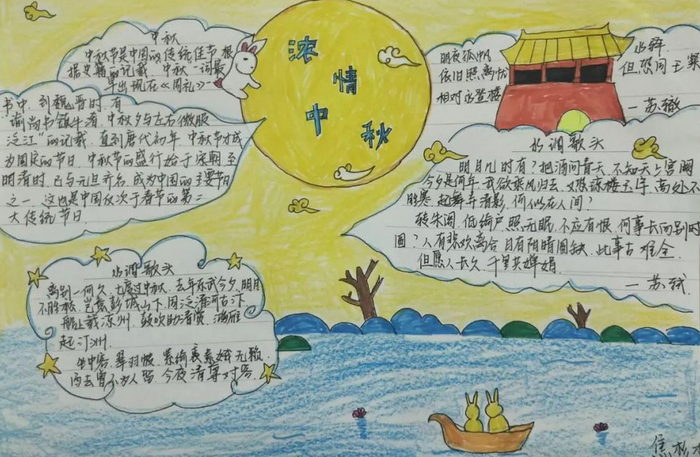 浓情中秋
中秋
中秋节是中国的传统佳节 根
据史籍的记载 中秋一词最
早出现在《周礼》一
书中. 到魏晋时, 有
尚书镇牛渚, 中秋夕与左右微服
泛江"的记载. 直到唐代初年 中秋节才成
为固定的节日. 中秋节的盛行始于宋朝 至
明清时, 已与元旦齐名, 成为中国的主要节日
之一. 这也是中国仅次于春节的第二
大传统节日.
水调歌头
离别一何久, 七度过中秋. 去年东武今夕, 明月
不胜愁. 岂意彭城山下, 同泛清河古汴
船上载凉州. 鼓吹助清赏, 鸿雁
起汀洲.
坐中客, 翠羽帔, 紫绮裘. 素娥无赖,
西去曾不为人留. 今夜清尊对客.
明夜孤帆 水驿
依旧照离忧 但恐同王粲
相对永登楼
一苏辙
水调歌头
明月几时有? 把酒问青天. 不知天上宫阙
今夕是何年. 我欲乘风归去, 又恐琼楼玉宇, 高处不
胜寒. 起舞弄清影, 何似在人间?
转朱阁, 低绮户, 照无眠. 不应有恨, 何事长向别时
圆? 人有悲欢离合, 月有阴晴圆缺. 此事古难全.
但愿人长久, 千里共婵娟.
一苏轼
焦